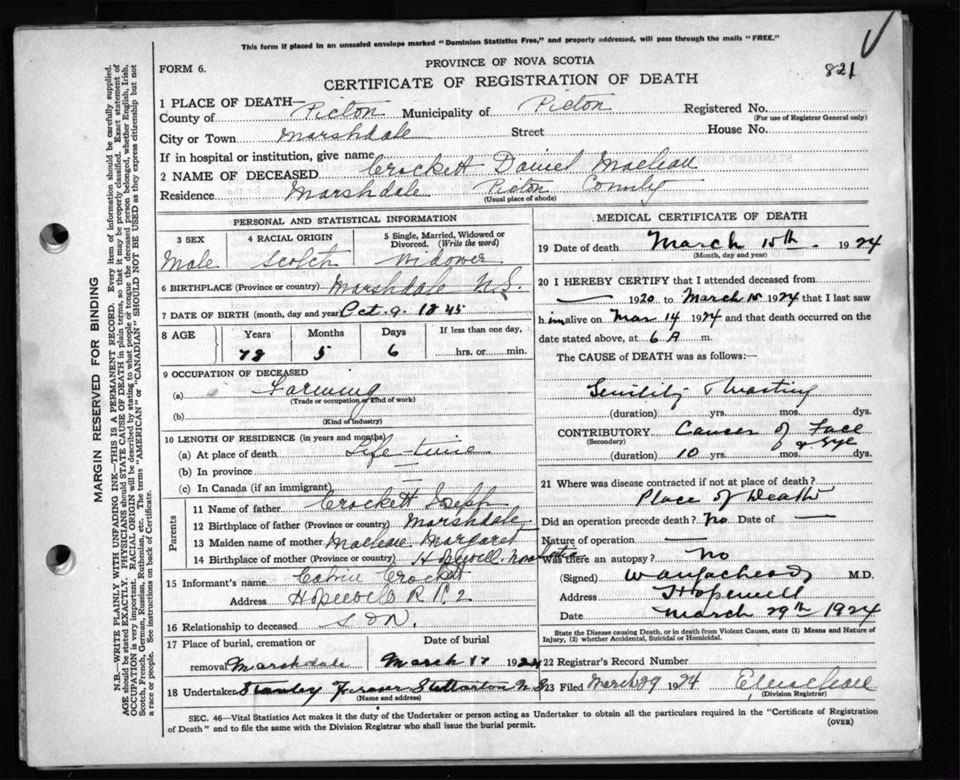 This form if placed in an unsealed envelope marked "Dominion Statistics Free," and properly addressed, will pass through the mails "FREE."
821
FORM 6.
PROVINCE OF NOVA SCOTIA
CERTIFICATE OF REGISTRATION OF DEATH
1 PLACE OF DEATH—
County of Pictou Municipality of Pictou Registered No.
(For use of Registrar General only)
City or Town Marshdale Street House No.
If in hospital or institution, give name
2 NAME OF DECEASED Crockett Daniel Maclean
Residence Marshdale Pictou County
(Usual place of abode)
MARGIN RESERVED FOR BINDING
N.B.—WRITE PLAINLY WITH UNFADING INK—THIS IS A PERMANENT RECORD. Every item of information should be carefully supplied.
AGE should be stated EXACTLY. PHYSICIANS should STATE CAUSE OF DEATH in plain terms, so that it may be properly classified. Exact statement of
OCCUPATION is very important. RACIAL ORIGIN will be described by stating to what people or tongue the deceased person belonged, whether English, Irish,
Scotch, French, German, Russian, Ruthenian, etc. The terms "AMERICAN" or "CANADIAN" SHOULD NOT BE USED as they express citizenship but not
a race or people. See instructions on back of Certificate.
PERSONAL AND STATISTICAL INFORMATION
3 SEX 4 RACIAL ORIGIN 5 Single, Married, Widowed or
Divorced. (Write the word)
Male Scotch Widower
6 BIRTHPLACE (Province or country) Marshdale N.S.
7 DATE OF BIRTH (month, day and year) Oct. 9. 1845
8 AGE Years Months Days If less than one day,
78 5 6 hrs. or min.
9 OCCUPATION OF DECEASED
(a) Farming
(Trade or occupation or kind of work)
(b)
(Kind of industry)
10 LENGTH OF RESIDENCE (in years and months)
(a) At place of death Life-time
(b) In province
(c) In Canada (if an immigrant)
Parents
11 Name of father Crockett
12 Birthplace of father (Province or country) Marshdale
13 Maiden name of mother Maclean Margaret
14 Birthplace of mother (Province or country) Hopewell. Nova Scotia
15 Informant's name Crockett
Address Hopewell R.R.2.
16 Relationship to deceased SON.
17 Place of burial, cremation or Date of burial
removal Marshdale March 17 1924
18 Undertaker Stanley Fraser Stellarton N.S.
(Name and address)
MEDICAL CERTIFICATE OF DEATH
19 Date of death March 15th. 1924
(Month, day and year)
20 I HEREBY CERTIFY that I attended deceased from
— 1920 to March 15 1924 that I last saw
him alive on Mar 14 1924 and that death occurred on the
date stated above, at 6 A m.
The CAUSE of DEATH was as follows:—
Senility & Wasting
(duration) yrs. mos. dys.
CONTRIBUTORY Cancer of Face
(Secondary) & Eye
(duration) 10 yrs. mos. dys.
21 Where was disease contracted if not at place of death?
Place of Death
Did an operation precede death? No Date of —
Nature of operation —
Was there an autopsy? No
(Signed) M.D.
Address Hopewell
Date March 29th 1924
State the Disease causing Death, or in death from Violent Causes, state (1) Means and Nature of
Injury, (2) whether Accidental, Suicidal or Homicidal.
22 Registrar's Record Number
23 Filed March 29 1924
(Division Registrar)
SEC. 46—Vital Statistics Act makes it the duty of the Undertaker or person acting as Undertaker to obtain all the particulars required in the "Certificate of Registration
of Death" and to file the same with the Division Registrar who shall issue the burial permit. (OVER)